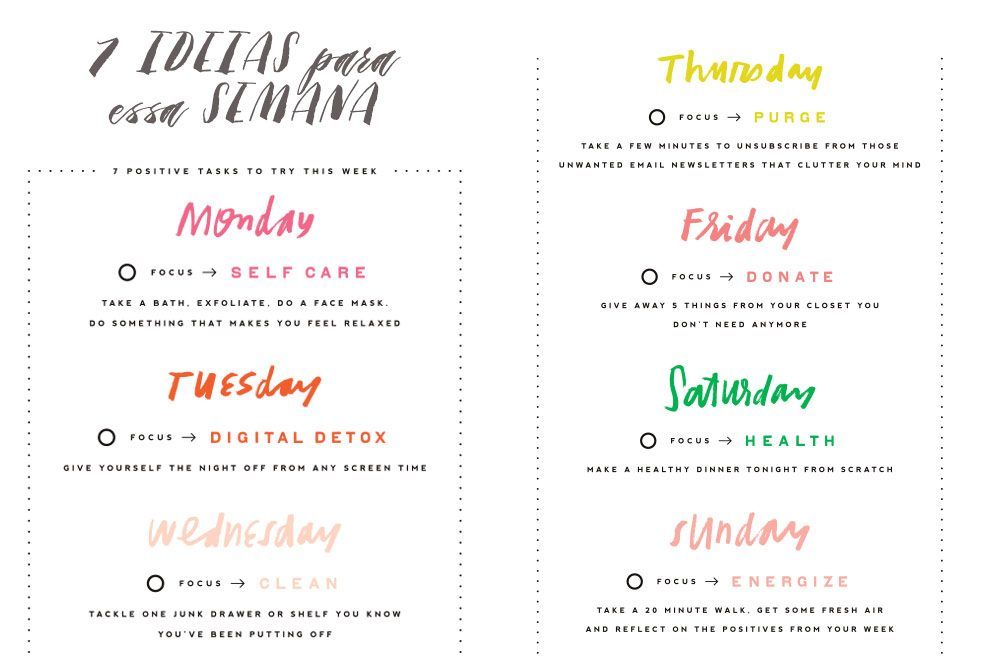 7 IDEIAS para
essa SEMANA
7 POSITIVE TASKS TO TRY THIS WEEK
Monday
FOCUS → SELF CARE
TAKE A BATH, EXFOLIATE, DO A FACE MASK.
DO SOMETHING THAT MAKES YOU FEEL RELAXED
TUESday
FOCUS → DIGITAL DETOX
GIVE YOURSELF THE NIGHT OFF FROM ANY SCREEN TIME
wednesday
FOCUS → CLEAN
TACKLE ONE JUNK DRAWER OR SHELF YOU KNOW
YOU'VE BEEN PUTTING OFF
Thursday
FOCUS → PURGE
TAKE A FEW MINUTES TO UNSUBSCRIBE FROM THOSE
UNWANTED EMAIL NEWSLETTERS THAT CLUTTER YOUR MIND
Friday
FOCUS → DONATE
GIVE AWAY 5 THINGS FROM YOUR CLOSET YOU
DON'T NEED ANYMORE
Saturday
FOCUS → HEALTH
MAKE A HEALTHY DINNER TONIGHT FROM SCRATCH
sunday
FOCUS → ENERGIZE
TAKE A 20 MINUTE WALK. GET SOME FRESH AIR
AND REFLECT ON THE POSITIVES FROM YOUR WEEK